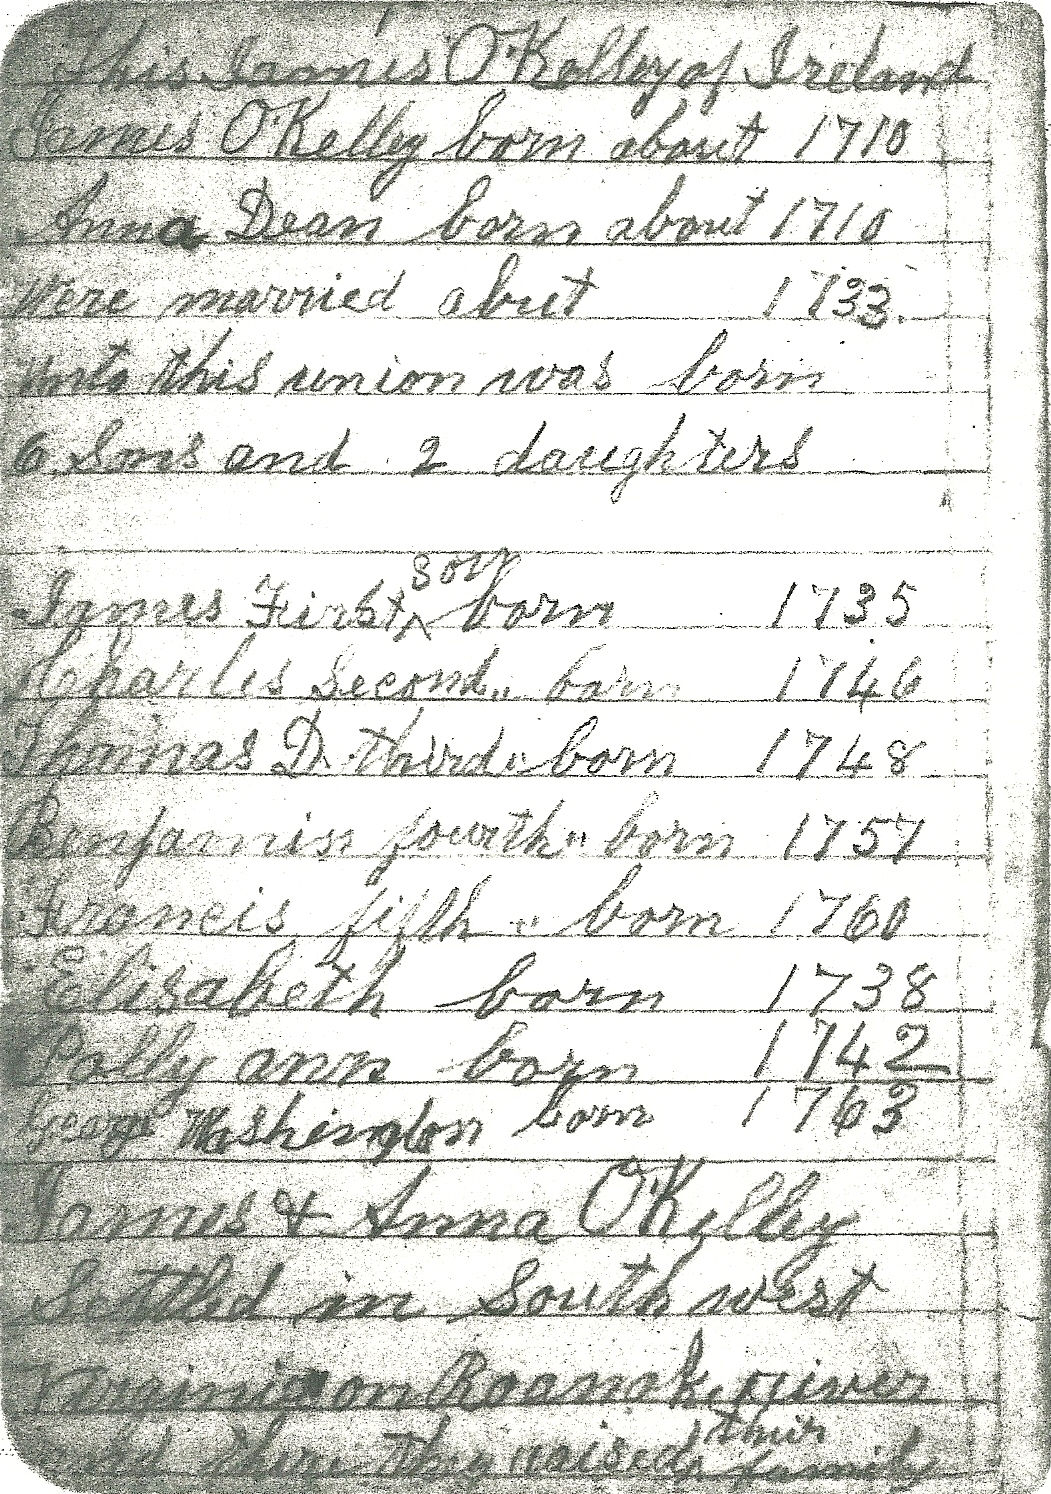 This James O'Kelley of Ireland
James O'Kelley born about 1710
Anna Dean born about 1710
Were married abut 1733.
unto this union was born
6 Sons and 2 daughters
son
James First ^ born 1735
Charles Second " born 1746
Thomas D. third " born 1748
Benjamin fourth " born 1757
Francis fifth " born 1760
Elisabeth born 1738
Polly ann born 1742
George Washington born 1763
James & Anna O'Kelley
Settled in South west
Virginia on Roanok river
their
and there they raised ^ family